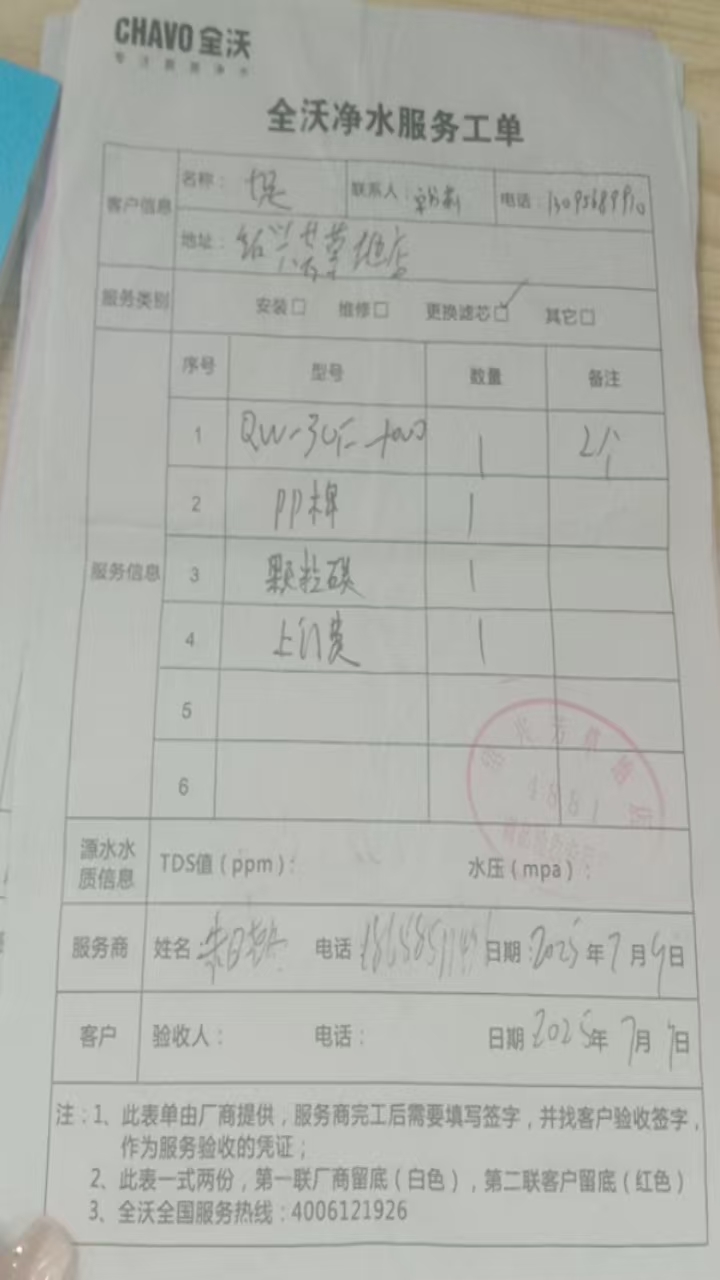 CHAVO 全沃
专注商用净水
全沃净水服务工单
客户信息
名称：堤
联系人：
电话：
地址：绍兴芳草地店
服务类别 安装□ 维修□ 更换滤芯□✓ 其它□
服务信息
序号 型号 数量 备注
1 1 2个
2 PP棉 1
3 颗粒碳 1
4 上门费 1
5
6
4881
源水水质信息 TDS值（ppm）： 水压（mpa）：
服务商 姓名： 电话 日期：2025年7月9日
客户 验收人： 电话： 日期 2025年7月9日
注：1、此表单由厂商提供，服务商完工后需要填写签字，并找客户验收签字，
作为服务验收的凭证；
2、此表一式两份，第一联厂商留底（白色），第二联客户留底（红色）
3、全沃全国服务热线：4006121926